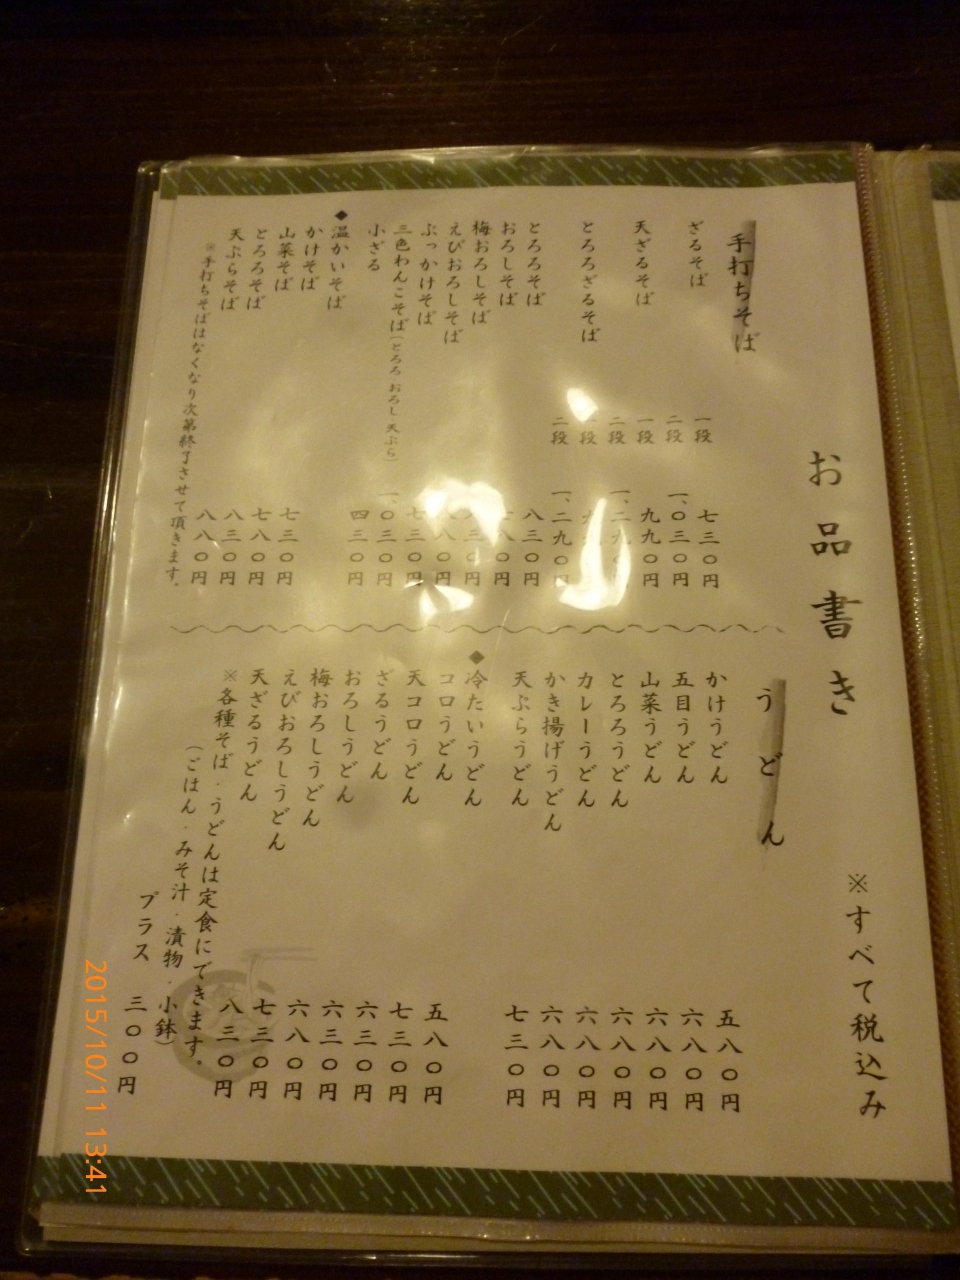 お品書き ※すべて税込み
手打ちそば
ざるそば 一段 七三〇円
二段 一、〇三〇円
天ざるそば 一段 九九〇円
二段 一、二九〇円
とろろざるそば 一段
二段 一、二九〇円
とろろそば 八三〇円
おろしそば
梅おろしそば
えびおろしそば 八八〇円
ぶっかけそば 七三〇円
三色わんこそば(とろろ・おろし・天ぷら) 一、〇三〇円
小ざる 四三〇円
◆温かいそば
かけそば 七三〇円
山菜そば 七八〇円
とろろそば 八三〇円
天ぷらそば 八八〇円
※手打ちそばはなくなり次第終了させて頂きます。
うどん
かけうどん 五八〇円
五目うどん 六八〇円
山菜うどん 六八〇円
とろろうどん 六八〇円
カレーうどん 六八〇円
かき揚げうどん 六八〇円
天ぷらうどん 七三〇円
◆冷たいうどん
コロうどん 五八〇円
天コロうどん 七三〇円
ざるうどん 六三〇円
おろしうどん 六三〇円
梅おろしうどん 六八〇円
えびおろしうどん 七三〇円
天ざるうどん 八三〇円
※各種そば・うどんは定食にできます。
(ごはん・みそ汁・漬物・小鉢)
プラス 三〇〇円
2015/10/11 13:41